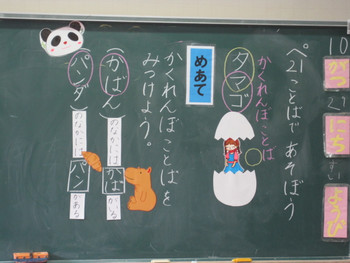 10
がつ
29
にち
ようび
ぺ21 ことばで あそぼう
かくれんぼことば
タマゴ
めあて
かくれんぼことばを
みつけよう。
かばん
のなかには
かば
がいる
パンダ
のなかには
パン
がある